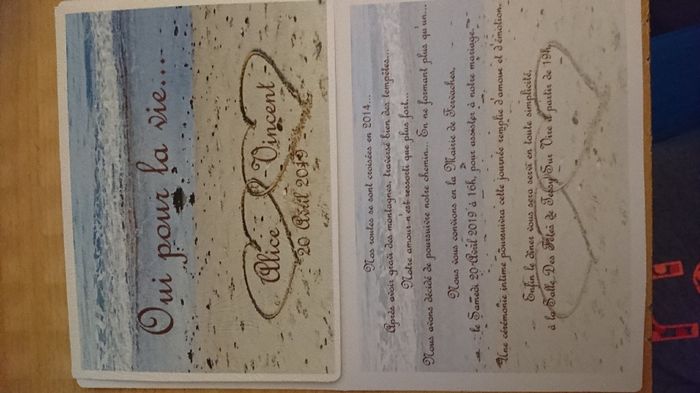 Oui pour la vie....
Alice - Vincent
20 Avril 2019
Nos routes se sont croisées en 2014...
Après avoir gravi des montagnes, traversé bien des tempêtes...
Notre amour n'est ressorti que plus fort...
Nous avons décidé de poursuivre notre chemin... En ne formant plus qu'un...
Nous vous convions en la Mairie de Fervaches,
le Samedi 20 Avril 2019 à 16h, pour assister à notre mariage.
Une cérémonie intime poursuivra cette journée remplie d'amour et d'émotion.
Enfin le dîner vous sera servi en toute simplicité,
à la Salle Des Fêtes de Tessy Sur Vire à partir de 19h.